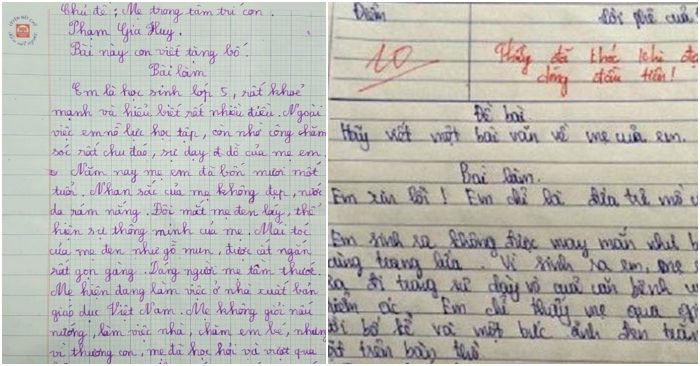 LUYỆN NÉT CHỮ
Chủ đề : Mẹ trong tâm trí con.
Phạm Gia Huy.
Bài này con viết tặng bố.
Bài làm
Em là học sinh lớp 5, rất khoẻ
mạnh và hiểu biết rất nhiều điều. Ngoài
việc em nỗ lực học tập, còn nhờ công chăm
sóc rất chu đáo, sự dạy dỗ của mẹ em.
Năm nay mẹ em đã bốn mươi mốt
tuổi. Nhan sắc của mẹ không đẹp, nước
da rám nắng. Đôi mắt mẹ đen láy, thể
hiện sự thông minh của mẹ. Mái tóc
của mẹ đen như gỗ mun, được cắt ngắn
rất gọn gàng. Dáng người mẹ tầm thước.
Mẹ hiện đang làm việc ở nhà xuất bản
giáo dục Việt Nam. Mẹ không giỏi nấu
nướng, làm việc nhà, chăm em bé, nhưng
vì thương con, mẹ đã học hỏi và vượt qua
Điểm
Lời phê của
10
Thầy đã khóc khi đọ
dòng đầu tiên!
Đề bài
Hãy viết một bài văn về mẹ của em.
Bài làm.
Em xin lỗi ! Em chỉ là đứa trẻ mồ
Em sinh ra không được may mắn như b
cùng trang lứa. Vì sinh ra em, mẹ
ra đi trong sự dày vò của căn bệnh
hiểm ác. Em chỉ thấy mẹ qua
bố kể và một bức ảnh đen trắn
trên bàn thờ